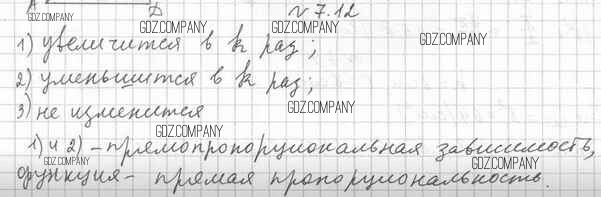 А Д № 7.12
1) увеличится в k раз;
2) уменьшится в k раз;
3) не изменится
1) и 2) – прямопропорциональная зависимость,
функция – прямая пропорциональность.
GDZ.COMPANY
GDZ.COMPANY
GDZ.COMPANY
GDZ.COMPANY
GDZ.COMPANY
GDZ.COMPANY
GDZ.COMPANY
GDZ.COMPANY